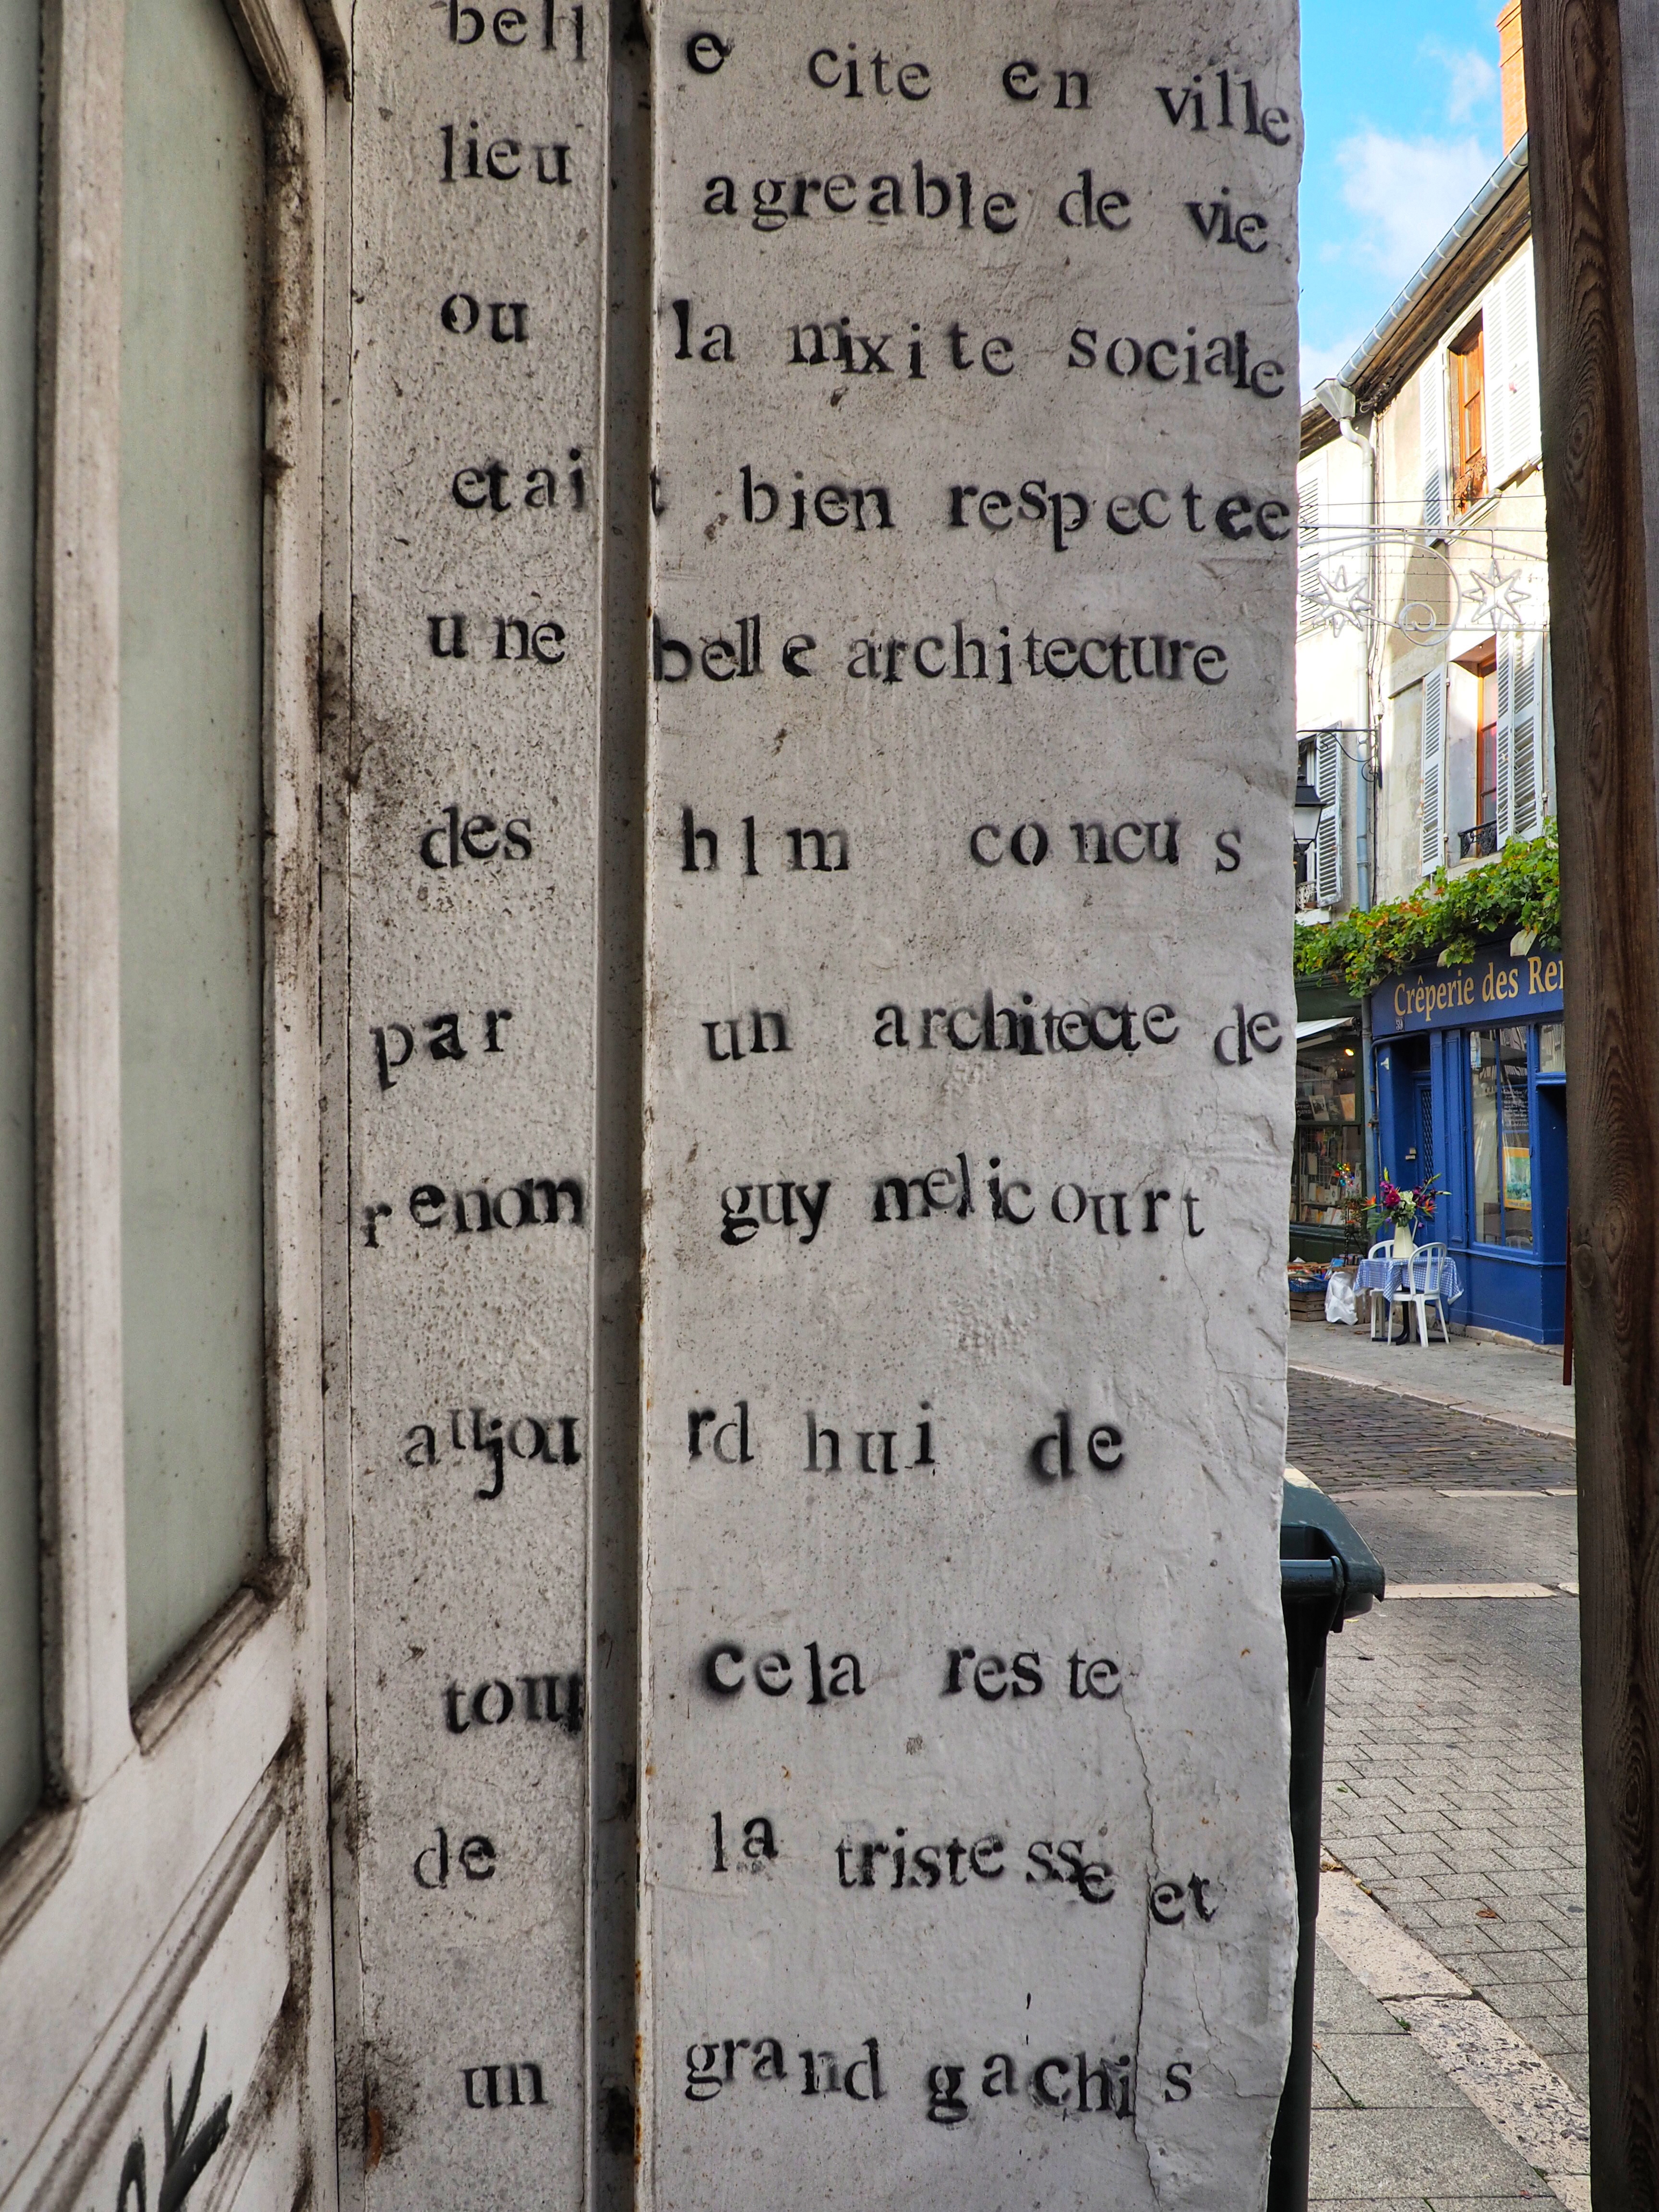 belle cite en ville
lieu agreable de vie
ou la mixite sociale
etait bien respectee
une belle architecture
des hlm concus
par un architecte de
renom guy melicourt
aujourd hui de
tout cela reste
de la tristesse et
un grand gachis
Crêperie des Rem